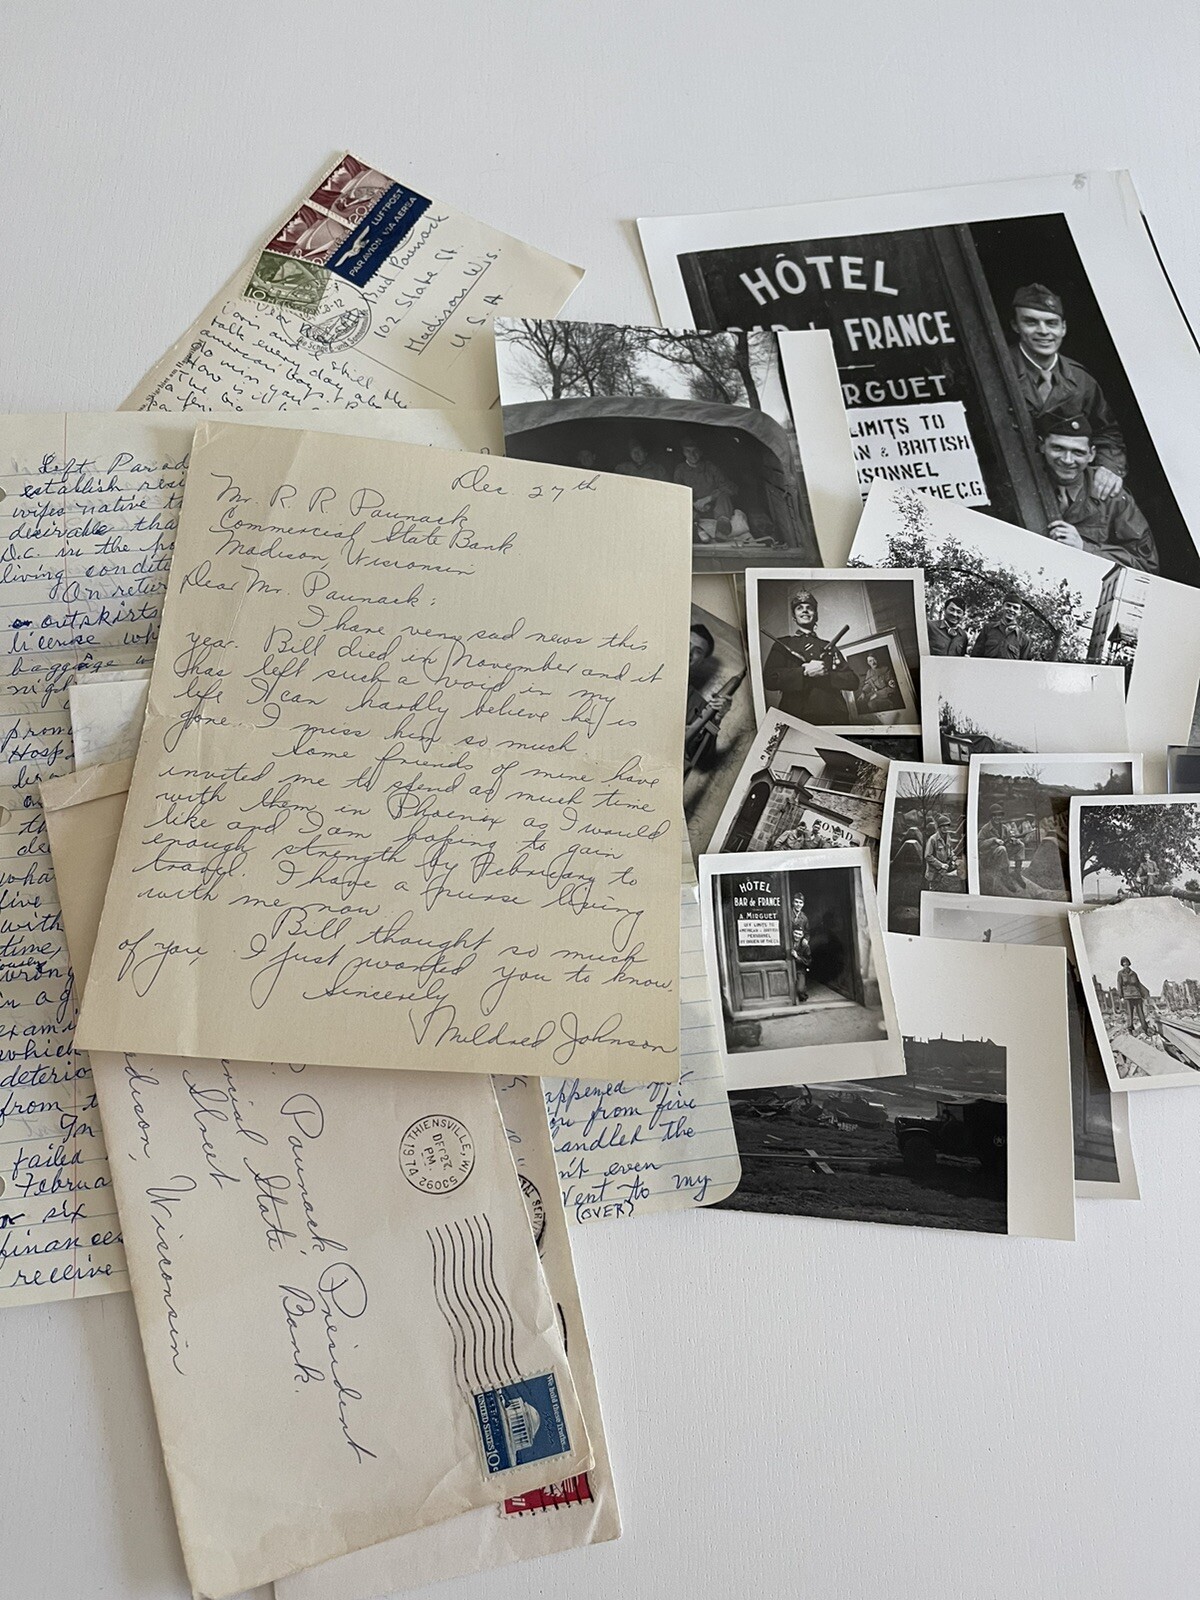 LUFTPOST
PAR AVION VIA AEREA
20
10
Bud Paunack
102 State St.
Madison Wis.
U. S. A
talk every day
american boys.
How is
HÔTEL
BAR de FRANCE
RGUET
LIMITS TO
AN & BRITISH
SONNEL
THE C.G.
Left Parad
establish resi
wifes native t
desirable tha
D.C. in the
living condit
On retur
outskirts
license wh
baggage w
nigh
prom
Hosp
th
wha
five
with
time,
wrong
in a g
exami
which
deterio
from t
In
failed
Februa
or six
finances
receive
Dec 27th
Mr. R R Paunack
Commercial State Bank
Madison, Wisconsin
Dear Mr. Paunack:
I have very sad news this
year. Bill died in November and it
has left such a void in my
life I can hardly believe he is
gone. I miss him so much.
Some friends of mine have
invited me to spend as much time
with them in Phoenix as I would
like and I am hoping to gain
enough strength by February to
travel. I have a nurse living
with me now
Bill thought so much
of you, I just wanted you to know.
Sincerely
Mildred Johnson
HÔTEL
BAR de FRANCE
A. MIRGUET
OFF LIMITS TO
AMERICAN & BRITISH
PERSONNEL
BY ORDER OF THE C.G.
appened
ou from five
handled the
n't even
Went to my
(OVER)
Paunack President
cial State Bank.
Street
dison, Wisconsin
THIENSVILLE, WI
DEC 27
PM
1974
We hold these Truths...
UNITED STATES 10c